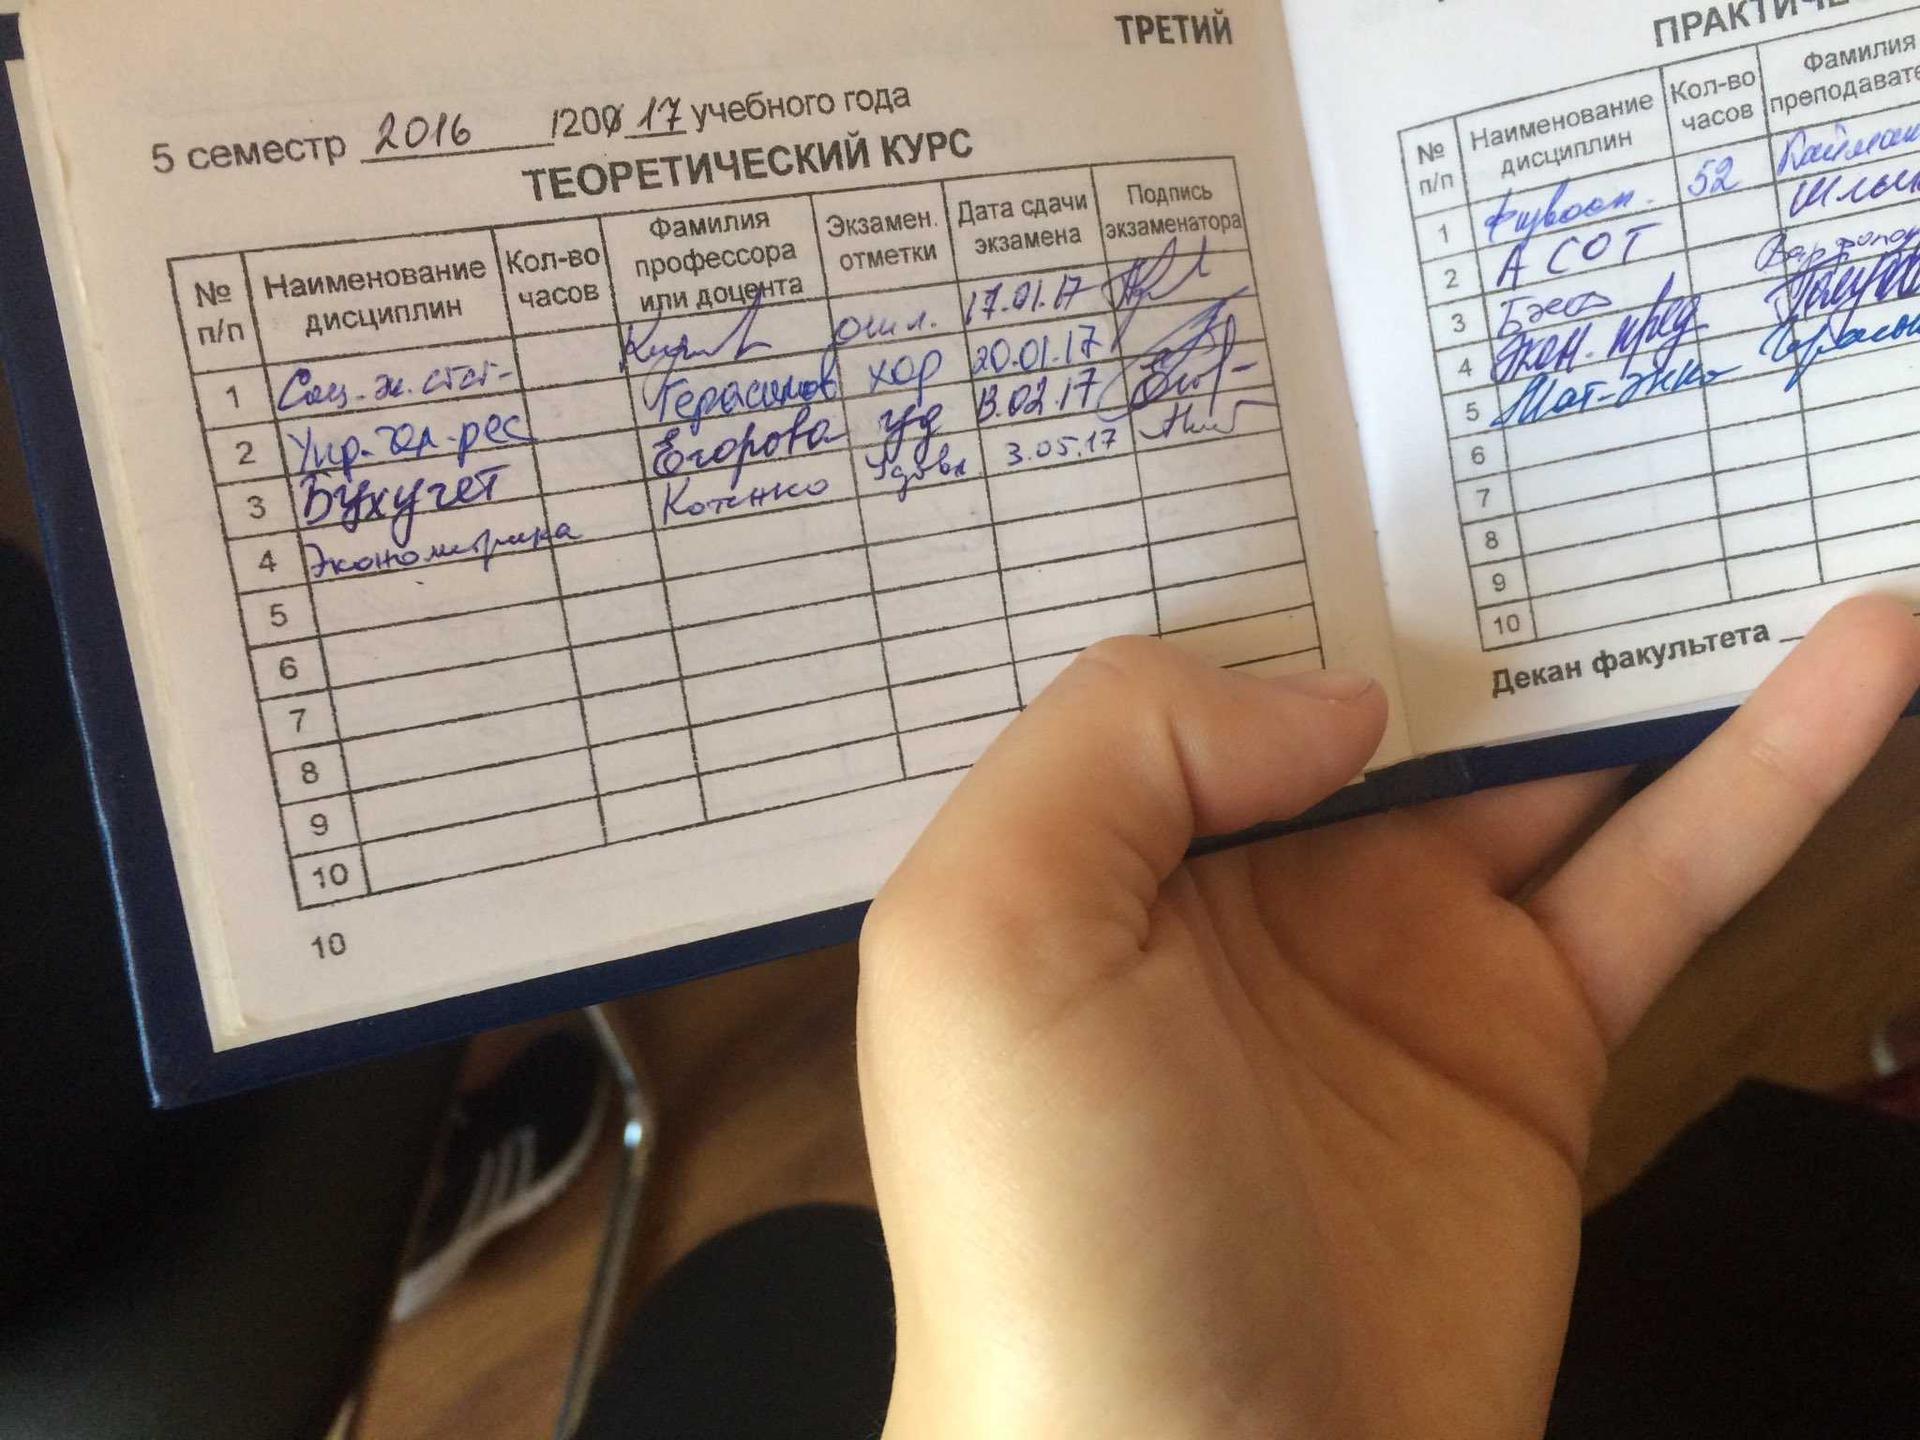 ТРЕТИЙ
5 семестр 2016 /200 17 учебного года
ТЕОРЕТИЧЕСКИЙ КУРС
№ п/п Наименование дисциплин Кол-во часов Фамилия профессора или доцента Экзамен. отметки Дата сдачи экзамена Подпись экзаменатора
1 Соц.-эк. стат- 17.01.17
2 Упр. чел. рес Герасимов хор 20.01.17
3 Бухучет Егорова уд 13.02.17
4 Эконометрика Котенко удовл. 3.05.17
5
6
7
8
9
10
10
ПРАКТИЧЕ
№ п/п Наименование дисциплин Кол-во часов Фамилия преподавате
1 52
2 АСОТ
3
4 Экон. пред
5 Мат-эко
6
7
8
9
10
Декан факультета